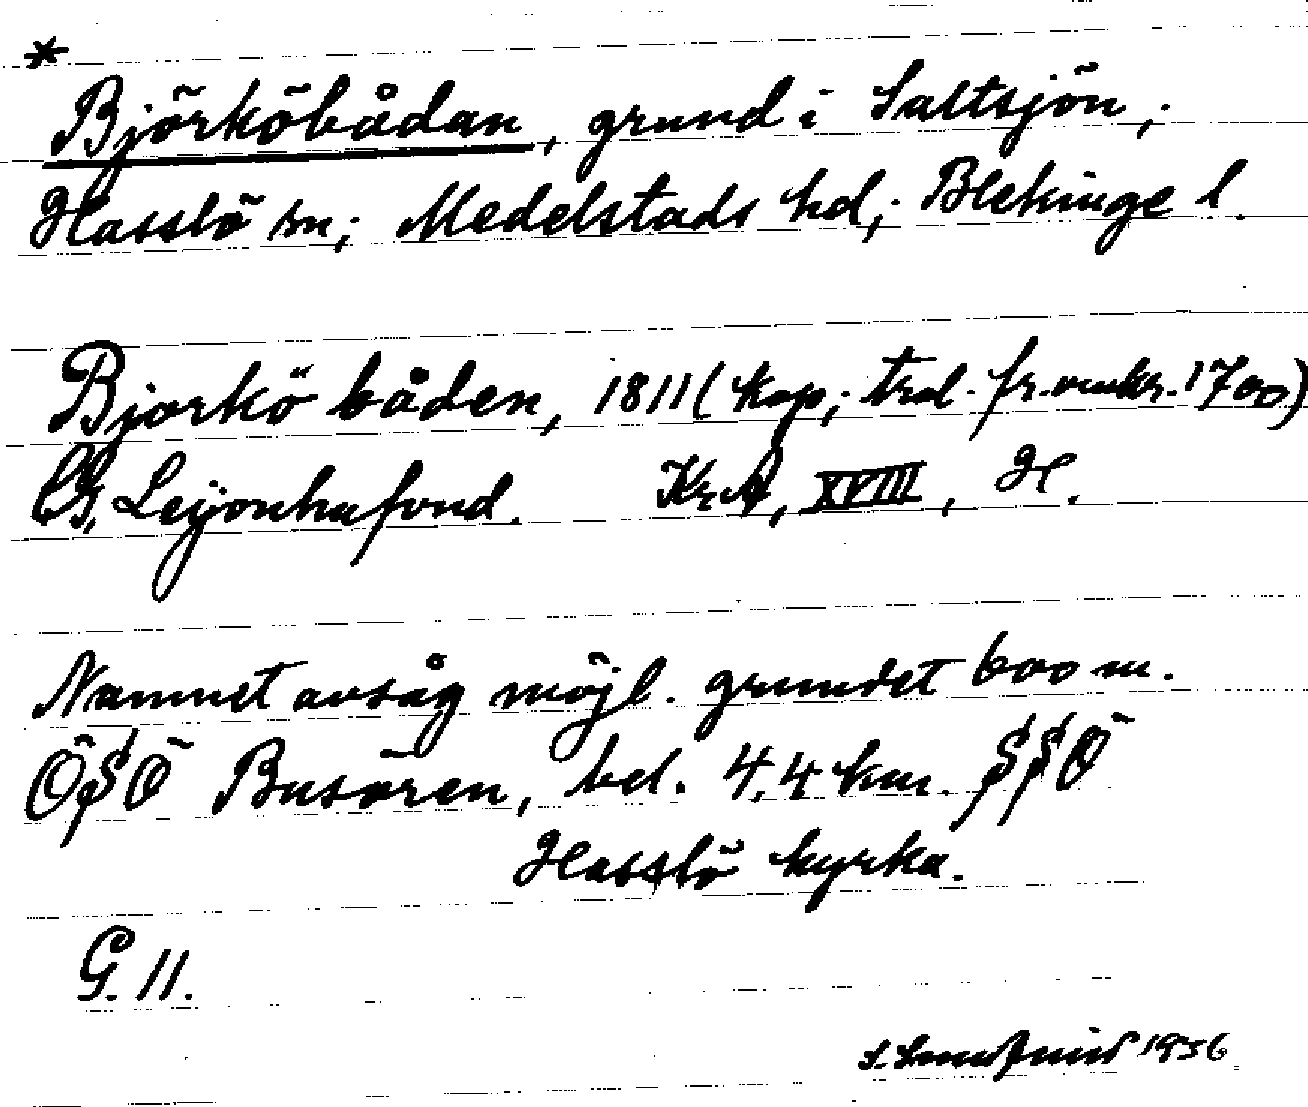 *
Björköbådan, grund i Saltsjön,
Hasslö sn; Medelstads hd; Blekinge l.
Bjorkö båden, 1811 (kop; trol. fr. omkr. 1700)
CG. Lejonhufvud. KrA, XVIII, H.
Namnet avsåg möjl. grundet 600 m.
ÖSÖ Busören, bel. 4,4 km. SSÖ
Hasslö kyrka.
G. 11.
1956